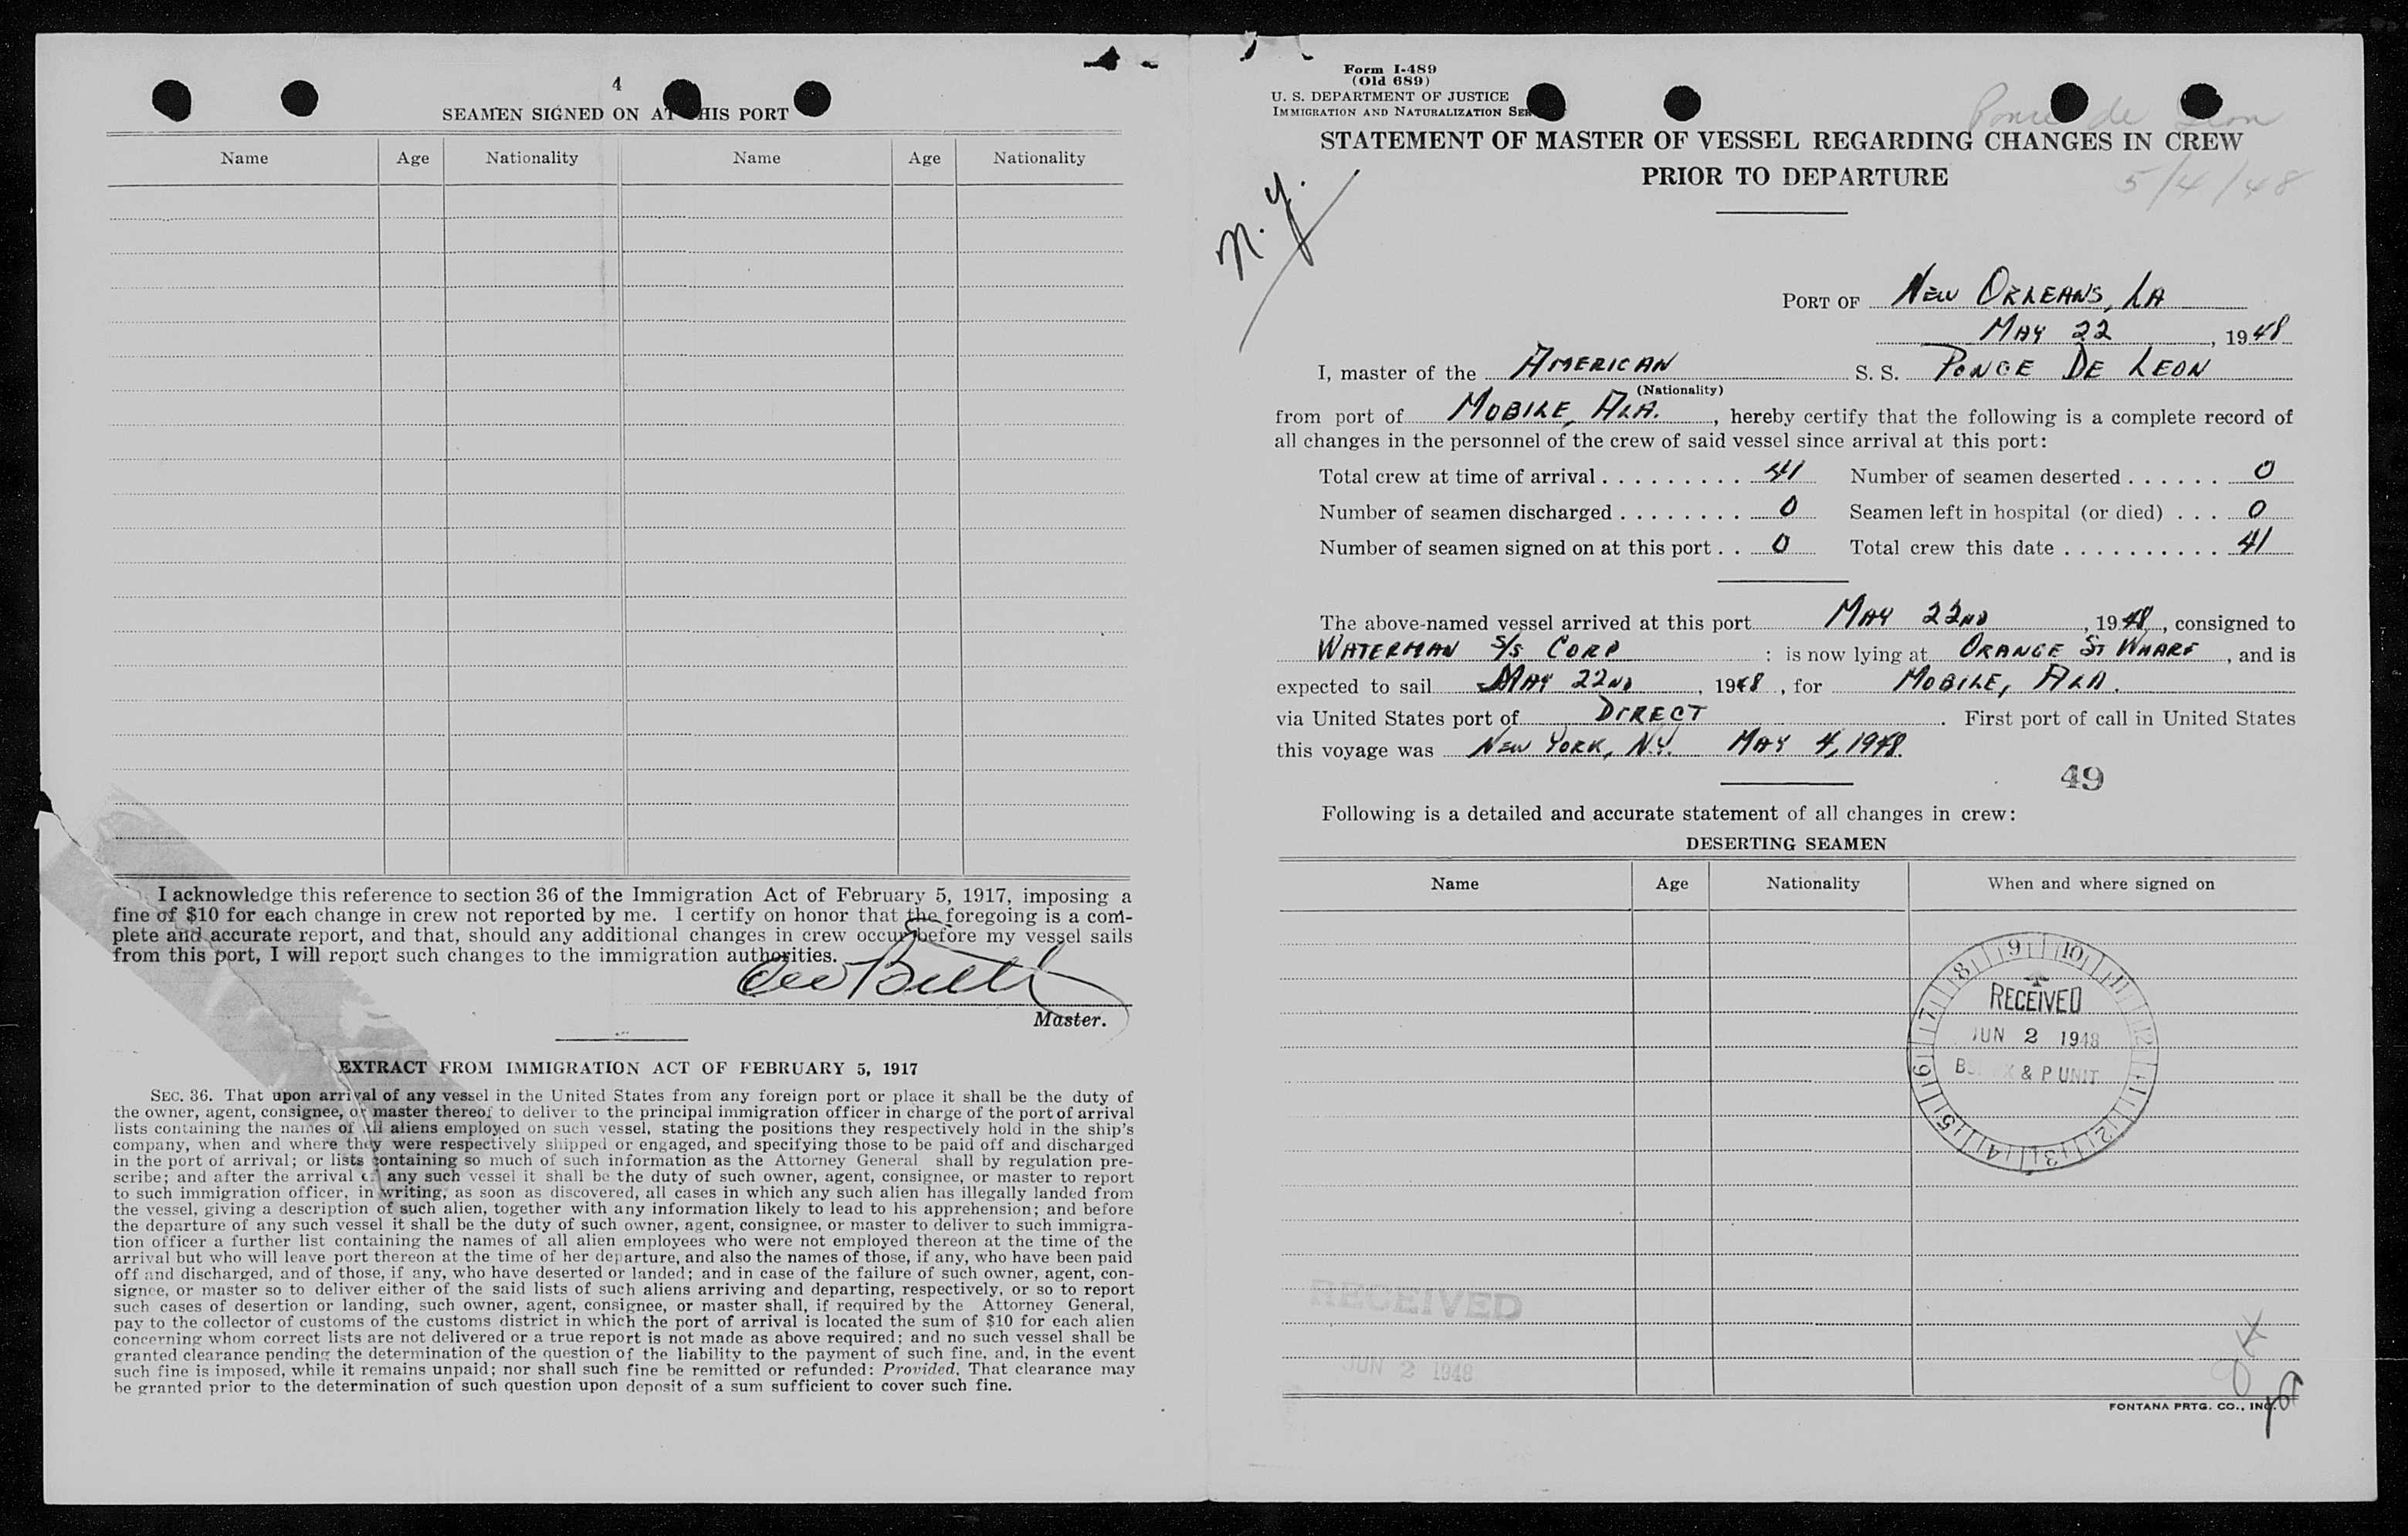 4
SEAMEN SIGNED ON AT THIS PORT
Name Age Nationality Name Age Nationality
I acknowledge this reference to section 36 of the Immigration Act of February 5, 1917, imposing a
fine of $10 for each change in crew not reported by me. I certify on honor that the foregoing is a com-
plete and accurate report, and that, should any additional changes in crew occur before my vessel sails
from this port, I will report such changes to the immigration authorities.
Master.
EXTRACT FROM IMMIGRATION ACT OF FEBRUARY 5, 1917
SEC. 36. That upon arrival of any vessel in the United States from any foreign port or place it shall be the duty of
the owner, agent, consignee, or master thereof to deliver to the principal immigration officer in charge of the port of arrival
lists containing the names of all aliens employed on such vessel, stating the positions they respectively hold in the ship's
company, when and where they were respectively shipped or engaged, and specifying those to be paid off and discharged
in the port of arrival; or lists containing so much of such information as the Attorney General shall by regulation pre-
scribe; and after the arrival of any such vessel it shall be the duty of such owner, agent, consignee, or master to report
to such immigration officer, in writing, as soon as discovered, all cases in which any such alien has illegally landed from
the vessel, giving a description of such alien, together with any information likely to lead to his apprehension; and before
the departure of any such vessel it shall be the duty of such owner, agent, consignee, or master to deliver to such immigra-
tion officer a further list containing the names of all alien employees who were not employed thereon at the time of the
arrival but who will leave port thereon at the time of her departure, and also the names of those, if any, who have been paid
off and discharged, and of those, if any, who have deserted or landed; and in case of the failure of such owner, agent, con-
signee, or master so to deliver either of the said lists of such aliens arriving and departing, respectively, or so to report
such cases of desertion or landing, such owner, agent, consignee, or master shall, if required by the Attorney General,
pay to the collector of customs of the customs district in which the port of arrival is located the sum of $10 for each alien
concerning whom correct lists are not delivered or a true report is not made as above required; and no such vessel shall be
granted clearance pending the determination of the question of the liability to the payment of such fine, and, in the event
such fine is imposed, while it remains unpaid; nor shall such fine be remitted or refunded: Provided, That clearance may
be granted prior to the determination of such question upon deposit of a sum sufficient to cover such fine.
Form I-489
(Old 689)
U. S. DEPARTMENT OF JUSTICE
IMMIGRATION AND NATURALIZATION SER
Ponce de Leon
STATEMENT OF MASTER OF VESSEL REGARDING CHANGES IN CREW
PRIOR TO DEPARTURE
5/4/48
N.Y.
PORT OF NEW ORLEANS, LA
MAY 22, 1948
I, master of the AMERICAN S. S. PONCE DE LEON
(Nationality)
from port of MOBILE, ALA., hereby certify that the following is a complete record of
all changes in the personnel of the crew of said vessel since arrival at this port:
Total crew at time of arrival 41 Number of seamen deserted 0
Number of seamen discharged 0 Seamen left in hospital (or died) 0
Number of seamen signed on at this port 0 Total crew this date 41
The above-named vessel arrived at this port MAY 22ND, 1948, consigned to
WATERMAN S/S CORP : is now lying at ORANGE ST WHARF, and is
expected to sail MAY 22ND, 1948, for MOBILE, ALA.
via United States port of DIRECT. First port of call in United States
this voyage was NEW YORK, N.Y. MAY 4, 1948.
49
Following is a detailed and accurate statement of all changes in crew:
DESERTING SEAMEN
Name Age Nationality When and where signed on
9 10 11 12 1 2 3 4 5 6 7 8
RECEIVED
JUN 2 1948
& P UNIT
RECEIVED
JUN 2 1948
FONTANA PRTG. CO., INC.